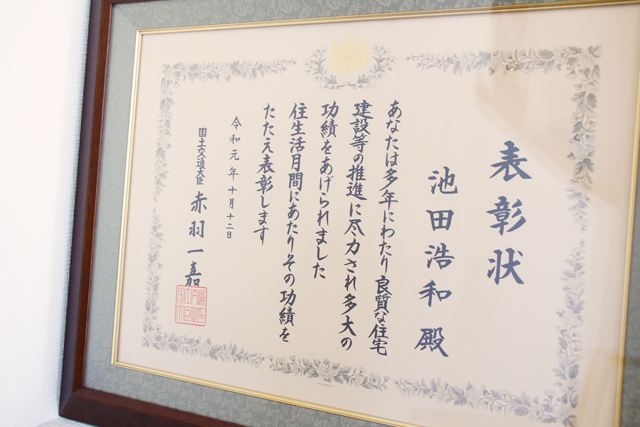 表彰状
池田浩和 殿
あなたは多年にわたり良質な住宅
建設等の推進に尽力され多大の
功績をあげられました
住生活月間にあたりその功績を
たたえ表彰します
令和元年十月十二日
国土交通大臣 赤羽一嘉